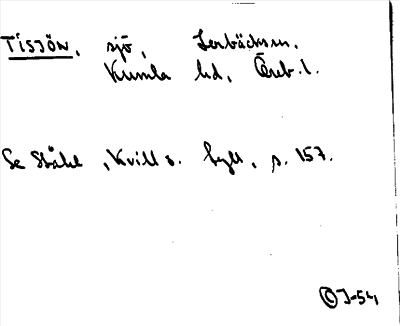 TISJÖN, sjö, Lerbäcks sn.
Kumla hd, Öreb. l.
Se Ståhl, Kvill o. hyll, s. 157.